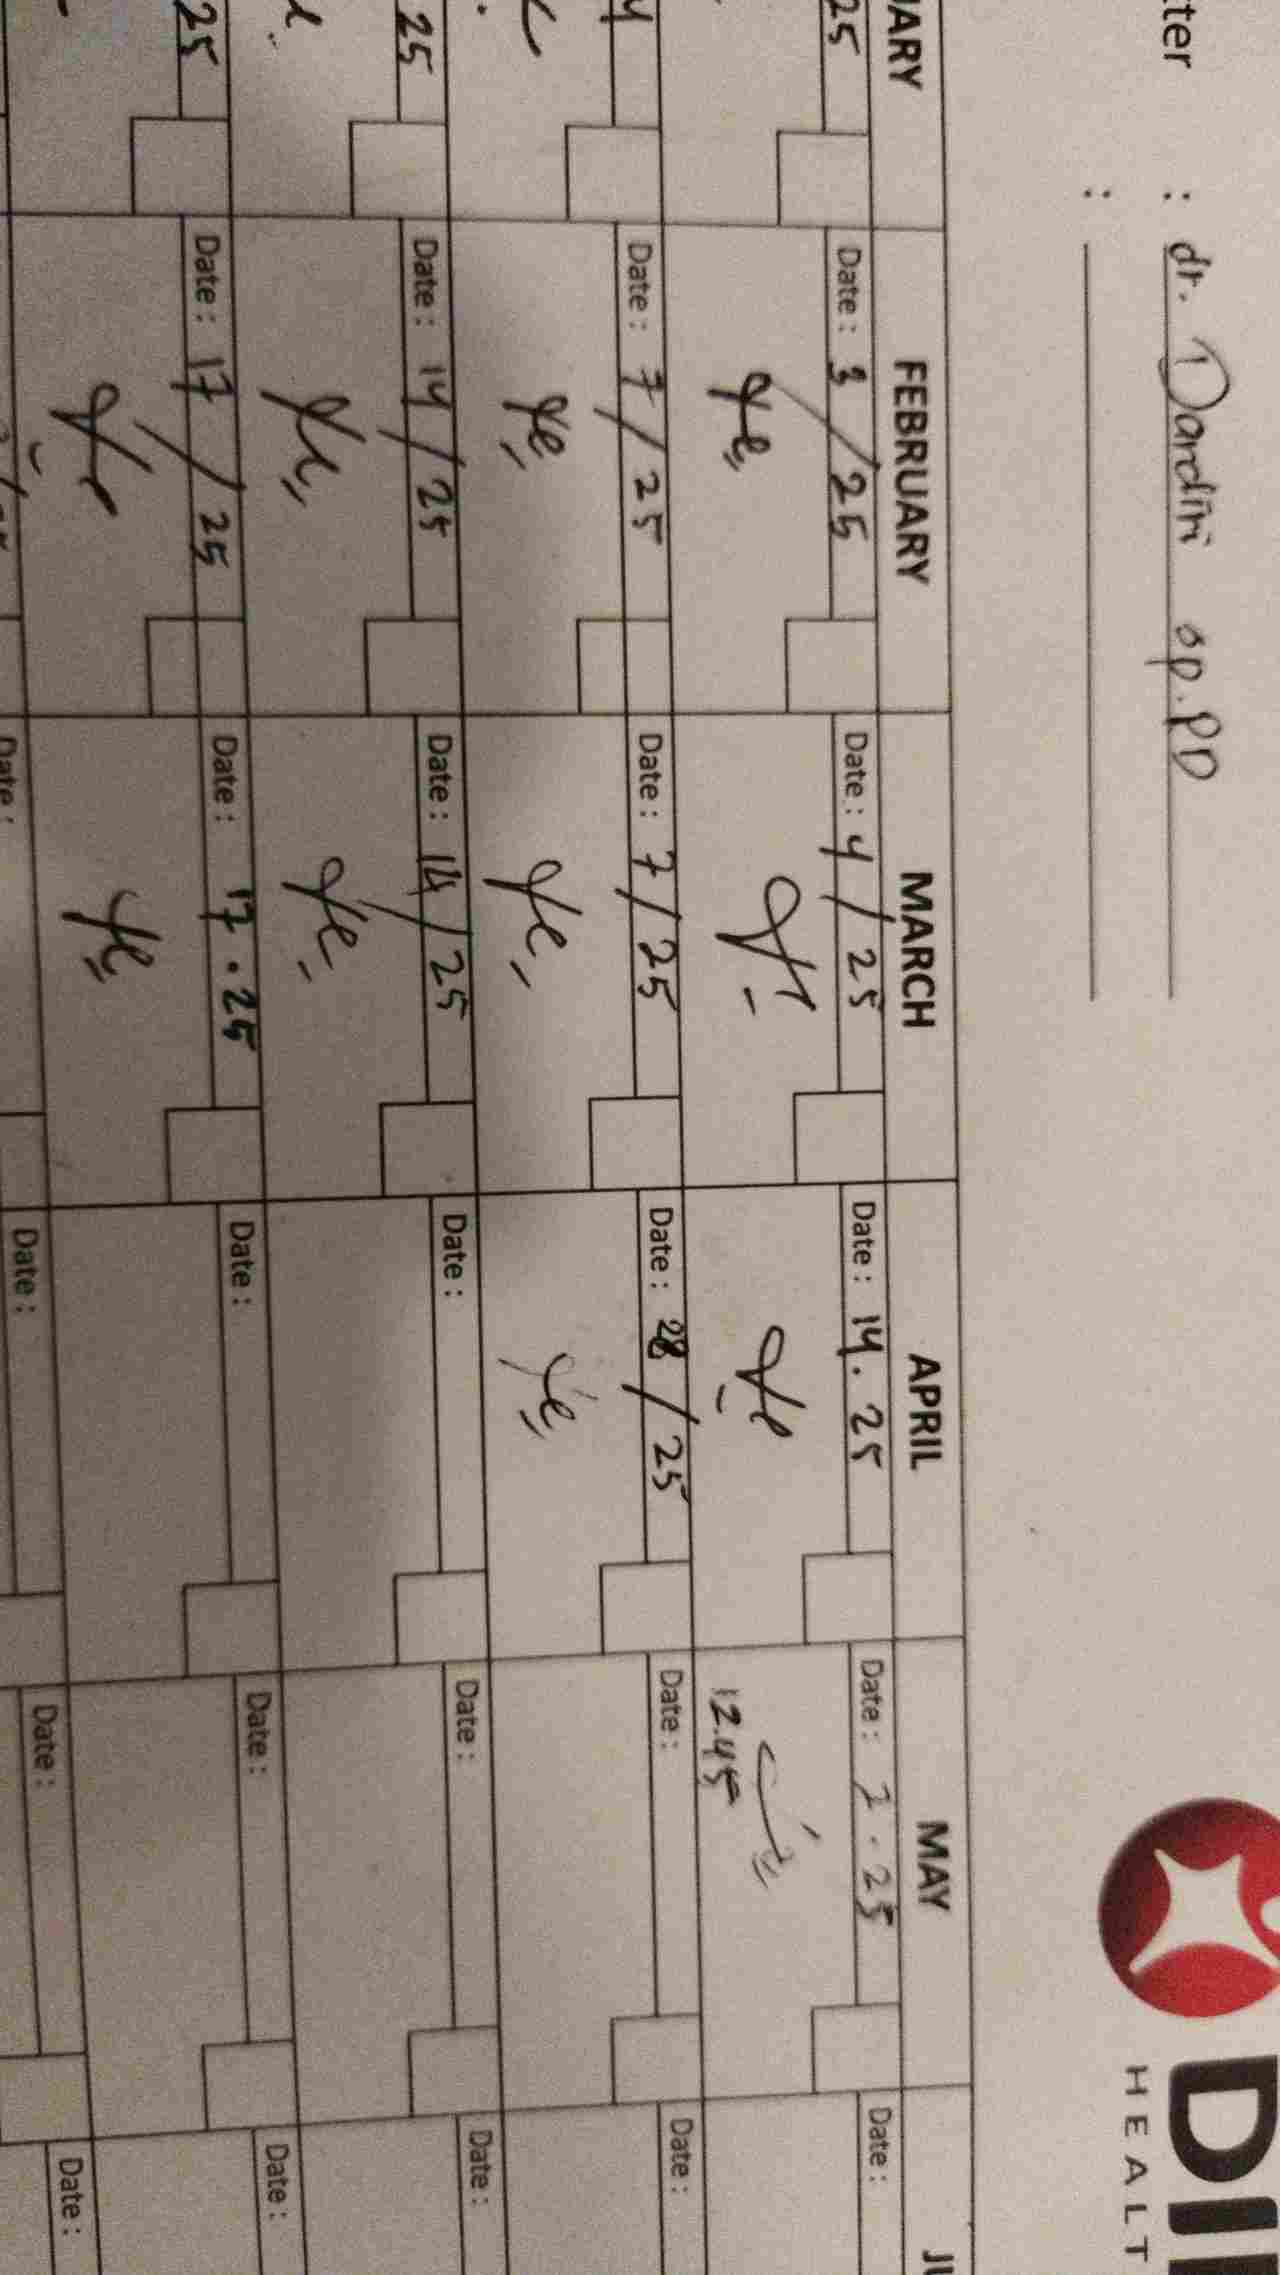 tter : dr. Dardini sp.PD
:
DII
HEALT
UARY FEBRUARY MARCH APRIL MAY JU
25 Date: 3/25 Date: 4/25 Date: 14.25 Date: 2.25 Date:
12.45
4 Date: 7/25 Date: 7/25 Date: 28/25 Date: Date:
25 Date: 14/25 Date: 14/25 Date: Date: Date:
25 Date: 17/25 Date: 17.25 Date: Date: Date:
Date: Date: Date: Date: